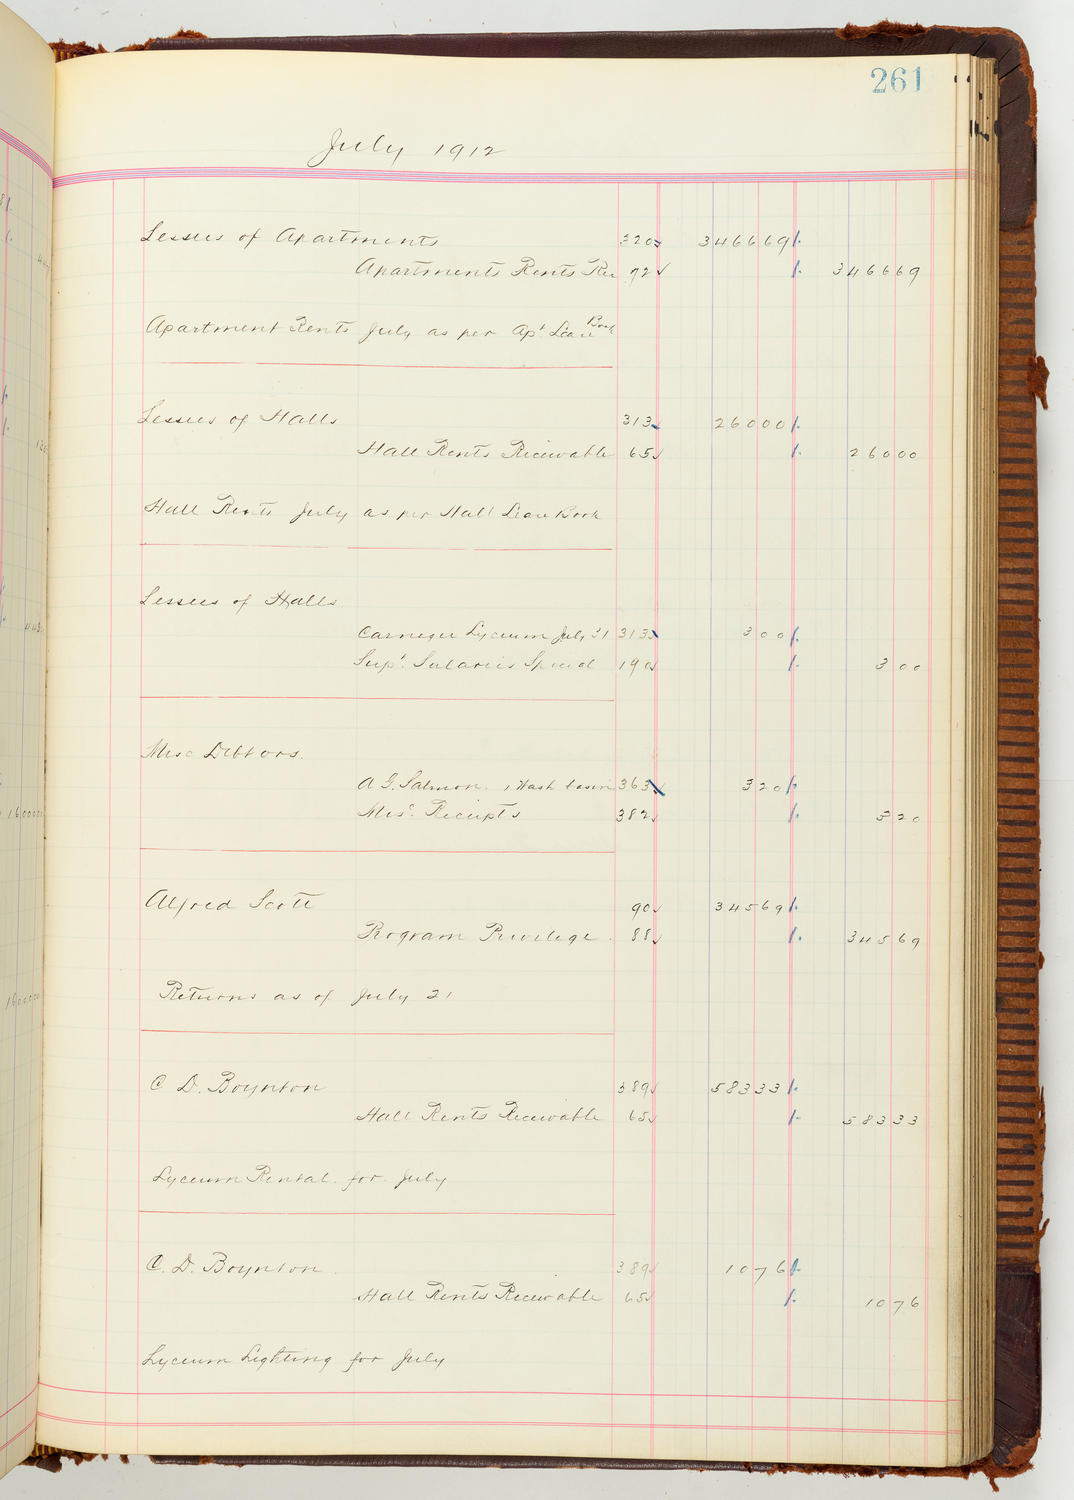 261
July 1912
Lessees of Apartments 320 346669
Apartments Rents Rec 72 346669
Apartment Rents July as per Apt Lease Book
Lessees of Halls 313 26000
Hall Rents Receivable 65 26000
Hall Rents July as per Hall Lease Book
Lessees of Halls
Carnegie Lyceum July 31 313 300
Supt. Salaries Special 190 300
Misc Debtors.
A G. Salmon. 1 Wash basin 363 320
Misc. Receipts 382 320
Alfred Scott 90 34569
Program Privilege. 88 34569
Returns as of July 21
C D. Boynton 389 58333
Hall Rents Receivable 65 58333
Lyceum Rental. for July
C. D. Boynton 389 1076
Hall Rents Receivable 65 1076
Lyceum Lighting for July